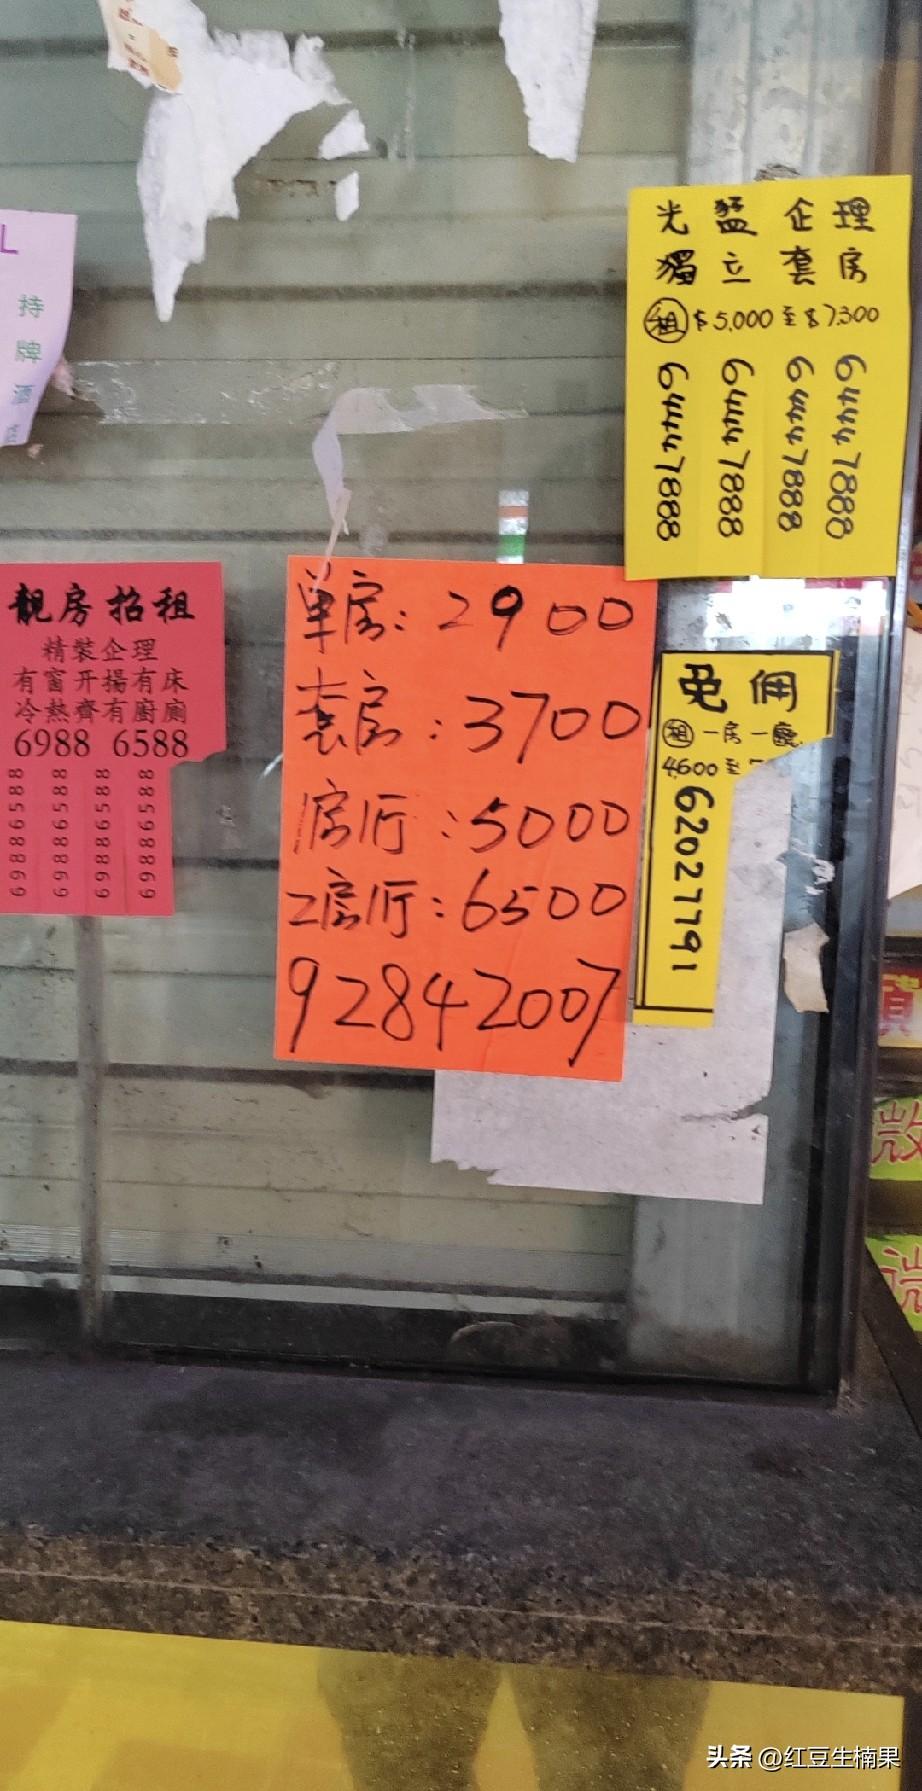 L
持
牌
酒
店
光猛企理
獨立套房
租 $5,000至$7,300
64447888
64447888
64447888
64447888
靚房招租
精裝企理
有窗开揚有床
冷熱齊有廚廁
6988 6588
69886588
69886588
69886588
69886588
单房:2900
套房:3700
1房厅:5000
2房1厅:6500
92842007
免佣
租 一房一廳
4,600至
62027791
微
头条 @红豆生楠果